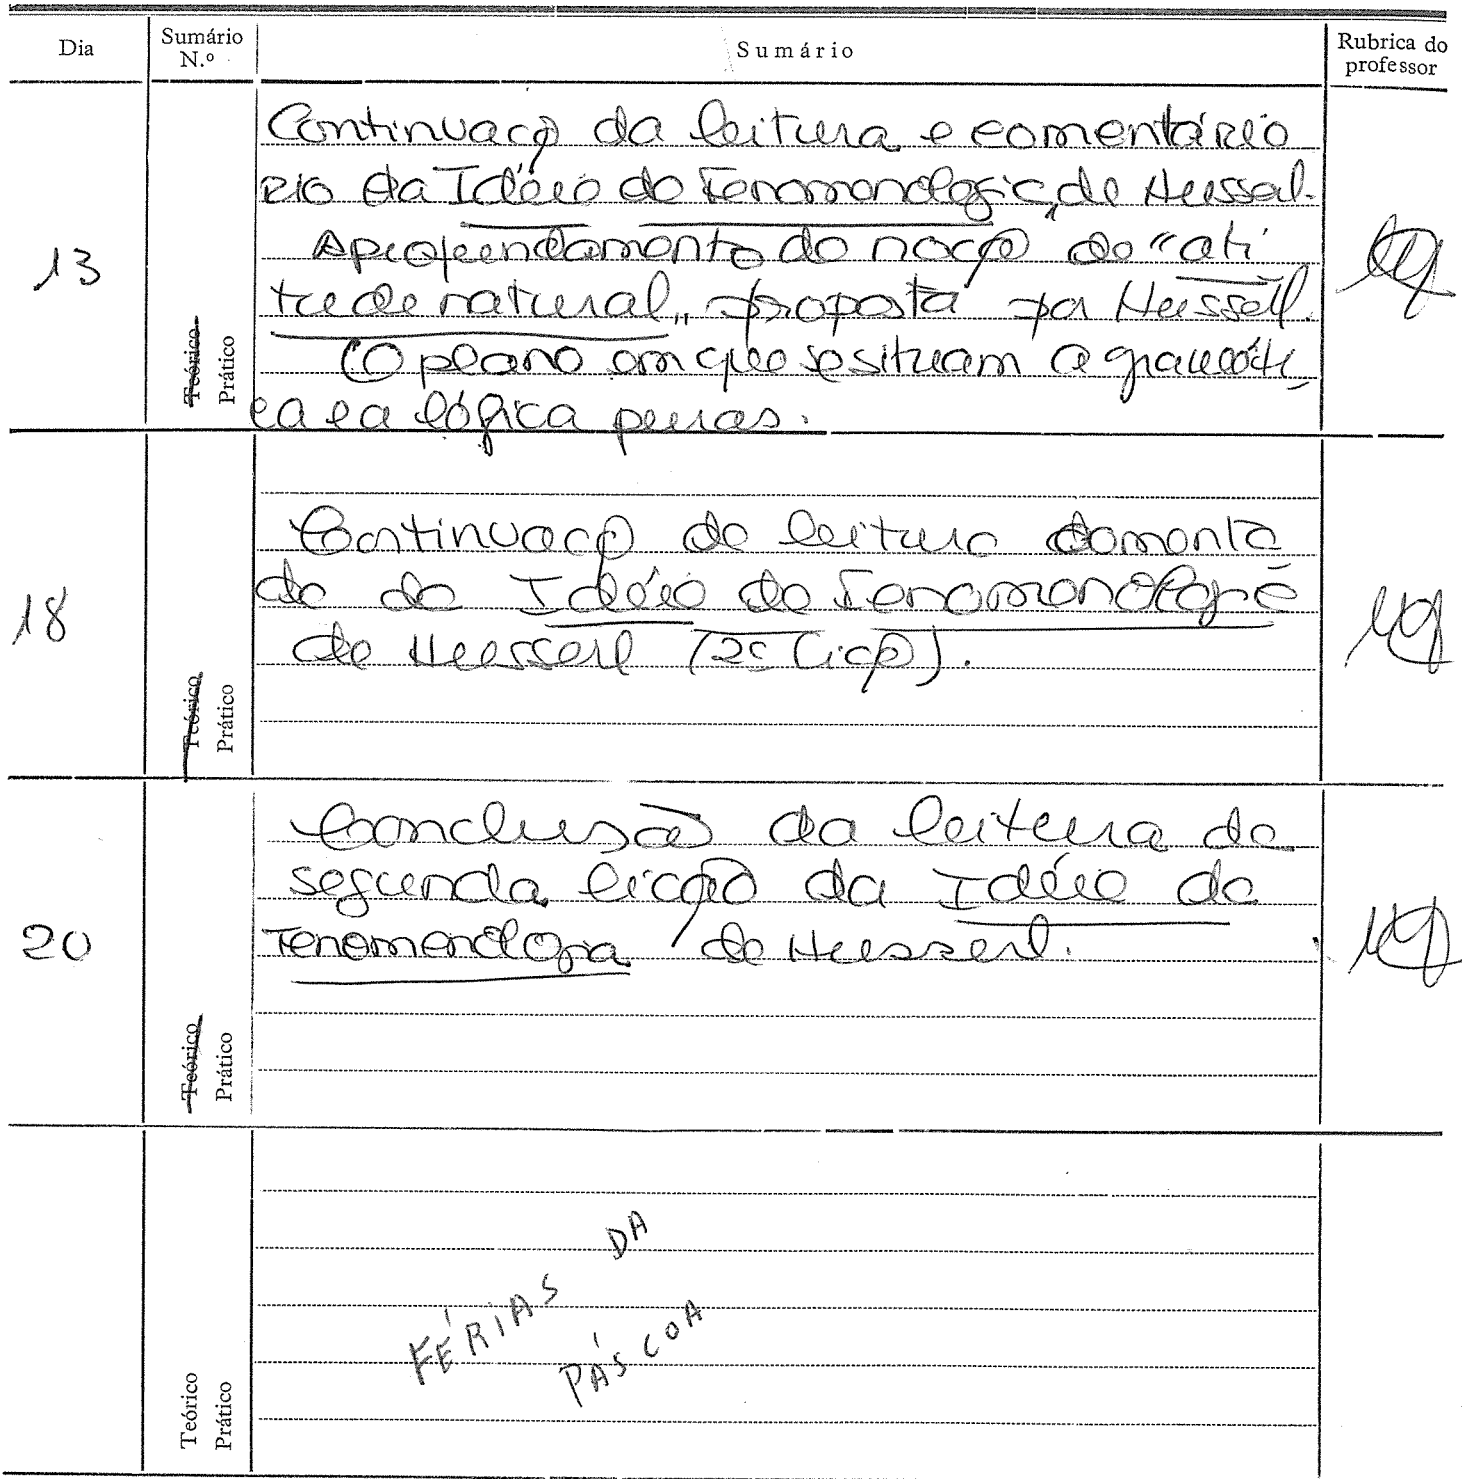 Dia
Sumário
N.º
Sumário
Rubrica do
professor
13
Teórico
Prático
Continuação da leitura e comentário
rio da Idéia da Fenomenologia, de Husserl.
Aprofundamento da noção de "ati
tude natural" proposta por Husserl.
O plano em que se situam a gramáti
ca e a lógica puras.
18
Teórico
Prático
Continuação da leitura comenta
da da Idéia da Fenomenologia
de Husserl (2ª Lição).
20
Teórico
Prático
Conclusão da leitura da
segunda lição da Idéia da
Fenomenologia de Husserl.
Teórico
Prático
FÉRIAS DA
PÁSCOA